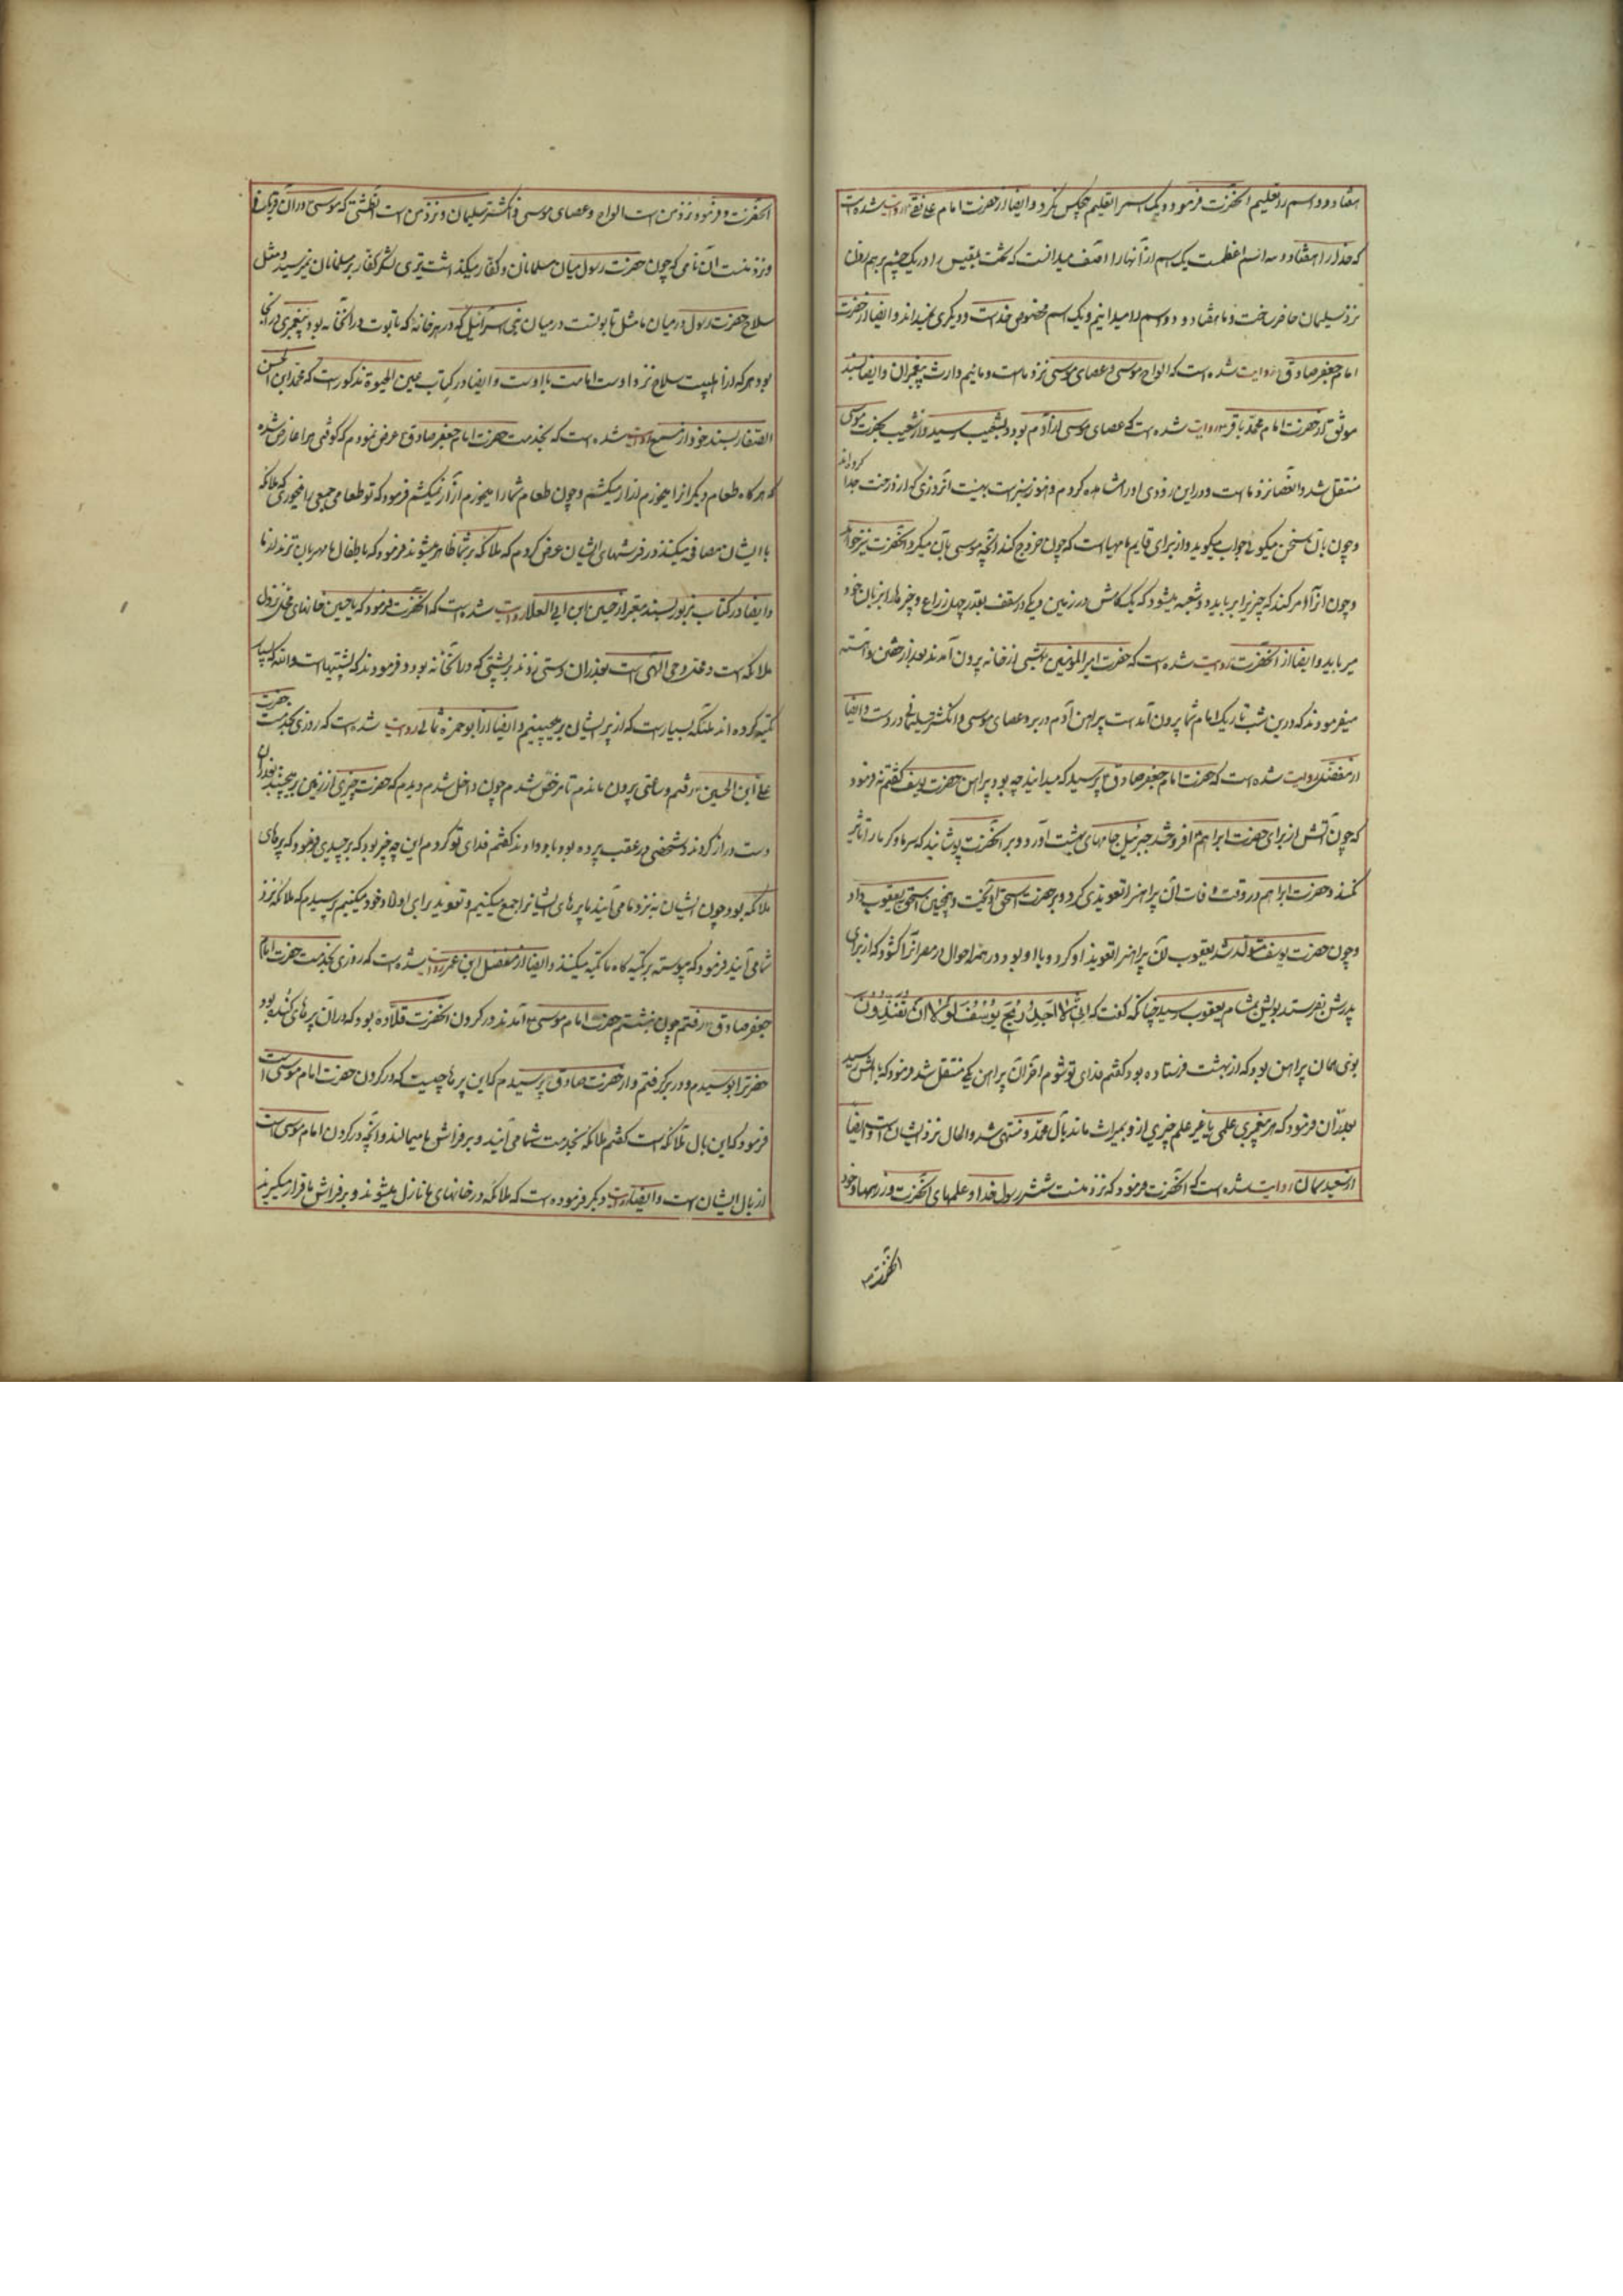 هفتاد و دو اسم را تعلیم آنحضرت فرمود و یک اسم را تعلیم هیچکس نکرد و ایضا از حضرت امام علی نقی ع روایت شده است
که خدا را هفتاد و سه اسم اعظمست یک اسم از آنها را آصف میدانست که تخت بلقیس را در یک چشم بر هم زدن
نزد سلیمان حاضر ساخت و ما هفتاد و دو اسم را میدانیم و یک اسم مخصوص خداست و دیگری نمیداند و ایضا از حضرت
امام جعفر صادق ع روایت شده است که الواح موسی و عصای موسی نزد ماست و مائیم وارث پیغمبران و ایضا بسند
موثق از حضرت امام محمد باقر ع روایت شده است که عصای موسی از آدم بود و بشعیب رسید و از شعیب بحضرت موسی
منتقل شد و آنعصا نزد ماست و در این زودی او را مشاهده کردم و هنوز سبز است بهیئت آنروزی که از درخت جدا کرده‌اند
و چون بآن سخن میگوئی جواب میگوید و از برای قایم ما مهیاست که چون خروج کند آنچه موسی بآن میکرد آنحضرت نیز خواهد
و چون او را امر کند که چیزیرا برباید دو شعبه میشود که یک کامش در زمین و یکی در سقف بقدر چهل ذراع و چیزها را بزبان خود
میرباید و ایضا از آنحضرت روایت شده است که حضرت امیرالمؤمنین ع شبی از خانه بیرون آمدند بعد از خفتن و آهسته
میفرمودند که درین شب تاریک امام شما بیرون آمدست پیراهن آدم در بر و عصای موسی و انگشتر سلیمانی در دست و ایضا
از مفضل روایت شده است که حضرت امام جعفر صادق ع پرسید که میدانید چه بود پیراهن حضرت یوسف گفتم نه فرمود
که چون آتش از برای حضرت ابراهیم افروختند جبرئیل جامهای بهشت آورد و بر آنحضرت پوشانید که سرما و گرما در آن تأثیر
نکند و حضرت ابراهیم در وقت وفات آن پیراهنرا تعویذی کرد و بر حضرت اسحق آویخت و همچنین اسحق بیعقوب داد
و چون حضرت یوسف متولد شد یعقوب آن پیراهنرا تعویذ او کرد و با او بود در همه احوال در مصر آنرا گشود که از برای
پدرش بفرستد بویش بمشام یعقوب رسید چنانکه گفت که انی لاجد ریح یوسف لولا ان تفندون
بوی همان پیراهن بود که از بهشت فرستاده بود گفتم فدای تو شوم آخر آن پیراهن بکی منتقل شد فرمود که باهلش رسید
بعد از آن فرمود که هر پیغمبری علمی یا غیر علم چیزی از و بمیراث ماند بآل محمد منتهی شد و الحال نزد ایشان است و ایضا
از سعید سمان روایت شده است که آنحضرت فرمود که نزد منست شمشیر رسول خدا و علمهای آنحضرت و زرهها و خود
آنحضرت
آنحضرت و فرمود نزد من است الواح و عصای موسی و انگشتر سلیمان و نزد من است آن طشتی که موسی در آن قربانی
و نزد منست آن نامی که چون حضرت رسول میان مسلمانان و کفار میگذاشت تیری از لشکر کفار بر مسلمانان نمیرسید و مثل
سلاح حضرت رسول در میان ما مثل تابوتست در میان بنی اسرائیل که در هر خانه که تابوت در آنخانه بود پیغمبری در آنجا
بود هر که از اهلبیت سلاح نزد اوست امامت با اوست و ایضا در کتاب عین الحیوة مذکور است که محمد ابن الحسن
الصفار بسند خود از مسمع روایت شده است که بخدمت حضرت امام جعفر صادق ع عرض نمودم که کوفتی مرا عارض شده
که هر گاه طعام دیگرانرا میخورم آزار میکشم و چون طعام شما را میخورم آزار نمیکشم فرمود که تو طعام جمعی را میخوری که ملائکه
با ایشان مصافحه میکنند در فرشهای ایشان عرض کردم که ملائکه بر شما ظاهر میشوند فرمود که باطفال ما مهربان‌ترند از ما
و ایضا در کتاب مزبور بسند معتبر از حسین ابن ابی العلا روایت شده است که آنحضرت فرمود که یا حسین خانهای ما محل نزول
ملائکه است و محل وحی الهی است بعد از آن دستی زدند بر پشتی که در آنخانه بود و فرمودند که پشتیهاست والله که بسیار
تکیه کرده‌اند ملائکه بسیار است که از پر ایشان برچیدیم و ایضا از ابو حمزه ثمالی روایت شده است که روزی بخدمت حضرت
علی ابن الحسین ع رفتم و ساعتی بیرون ماندم تا مرخص شدم چون داخل شدم دیدم که حضرت چیزی از زمین بر میچینند بعد از آن
دست دراز کردند و شخصی در عقب پرده بود باو دادند گفتم فدای تو گردم این چه چیز بود که برچیدی فرمود که پرهای
ملائکه بود چون ایشان بنزد ما می‌آیند ما پرهای ایشانرا جمع میکنیم و تعویذ برای اولاد خود میکنیم پرسیدم که ملائکه نزد
شما می‌آیند فرمود که پیوسته بر تکیه گاه ما تکیه میکنند و ایضا از مفضل ابن عمر روایت شده است که روزی بخدمت حضرت امام
جعفر صادق ع رفتم چون نشستم حضرت امام موسی ع آمدند در گردن آنحضرت قلاده بود که در آن پرهای گنده بود
حضرترا بوسیدم و در بر گرفتم و از حضرت صادق پرسیدم که این پرها چیست که در گردن حضرت امام موسی است
فرمود که این بال ملائکه است گفتم ملائکه بخدمت شما می‌آیند و بر فراش ها میمالند و آنچه در گردن امام موسی است
از بال ایشان است و ایضا روایت دیگر فرموده است که ملائکه در خانهای ما نازل میشوند و بر فراش ما قرار میگیرند